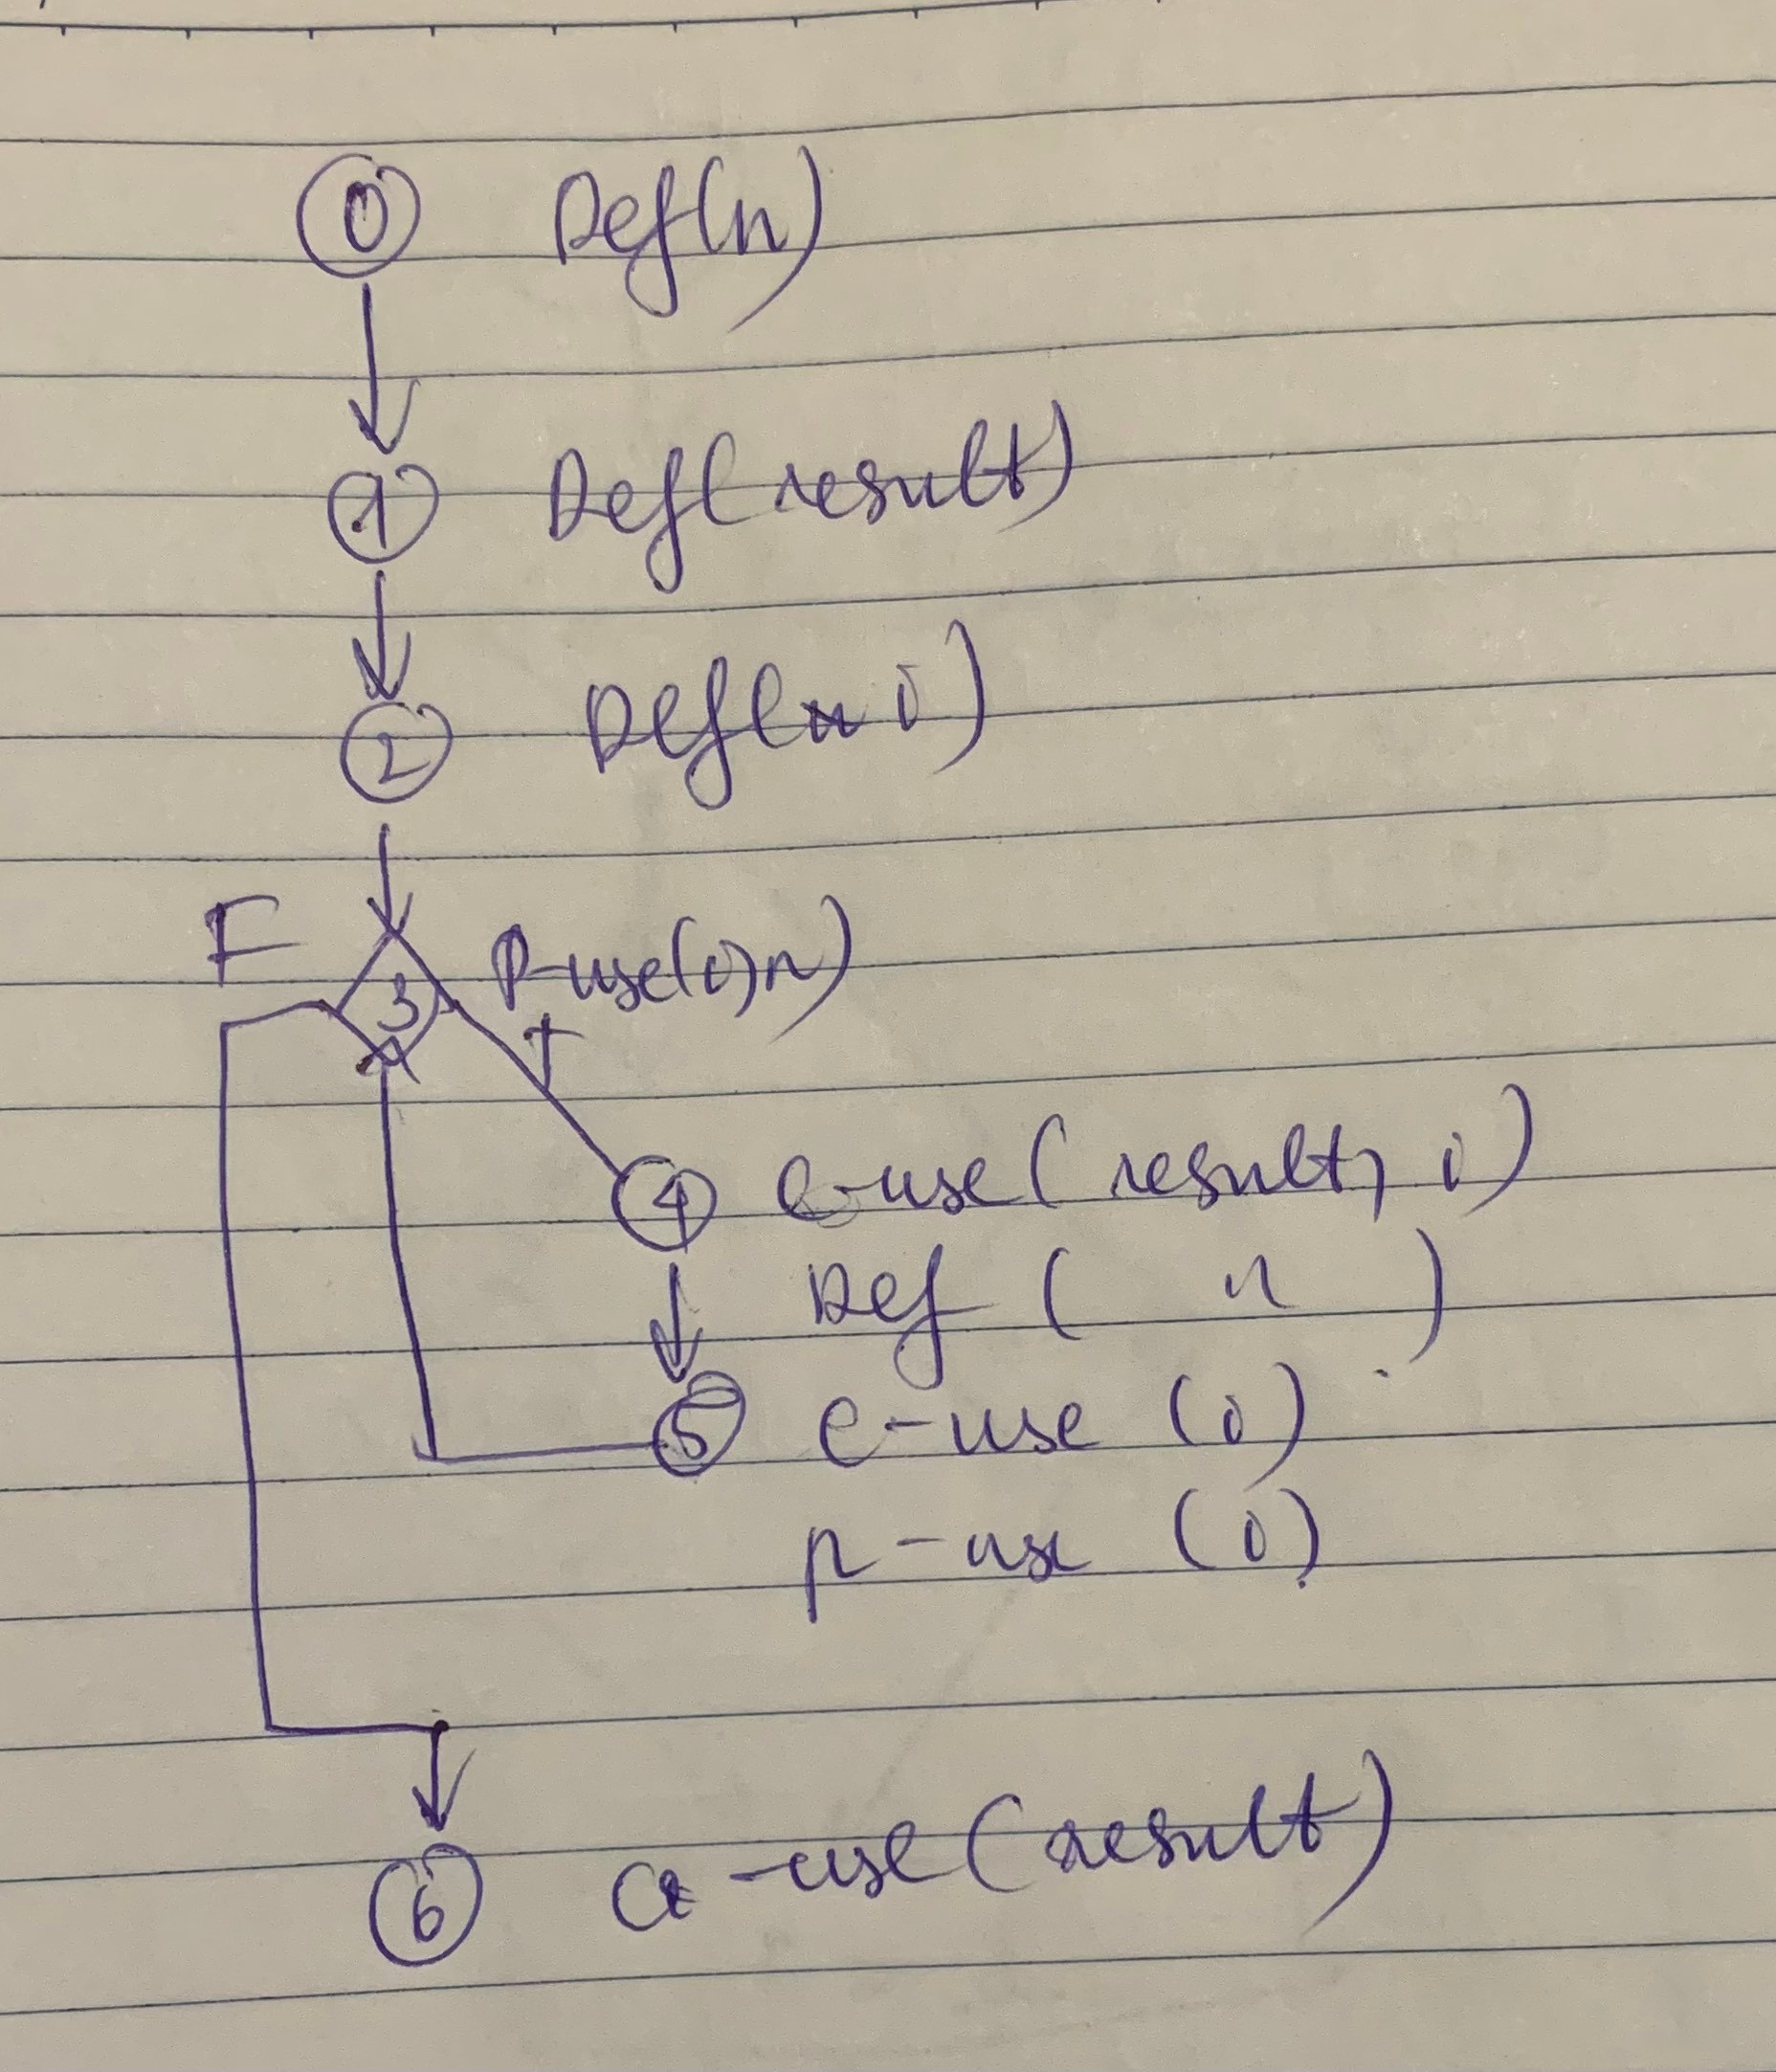 0 Def(n)
1 Def(result)
2 Def(i)
F
3 P-use(i,n)
T
4 c-use(result, i)
Def ( " )
5 c-use (i)
p-use (i)
6 c-use(result)